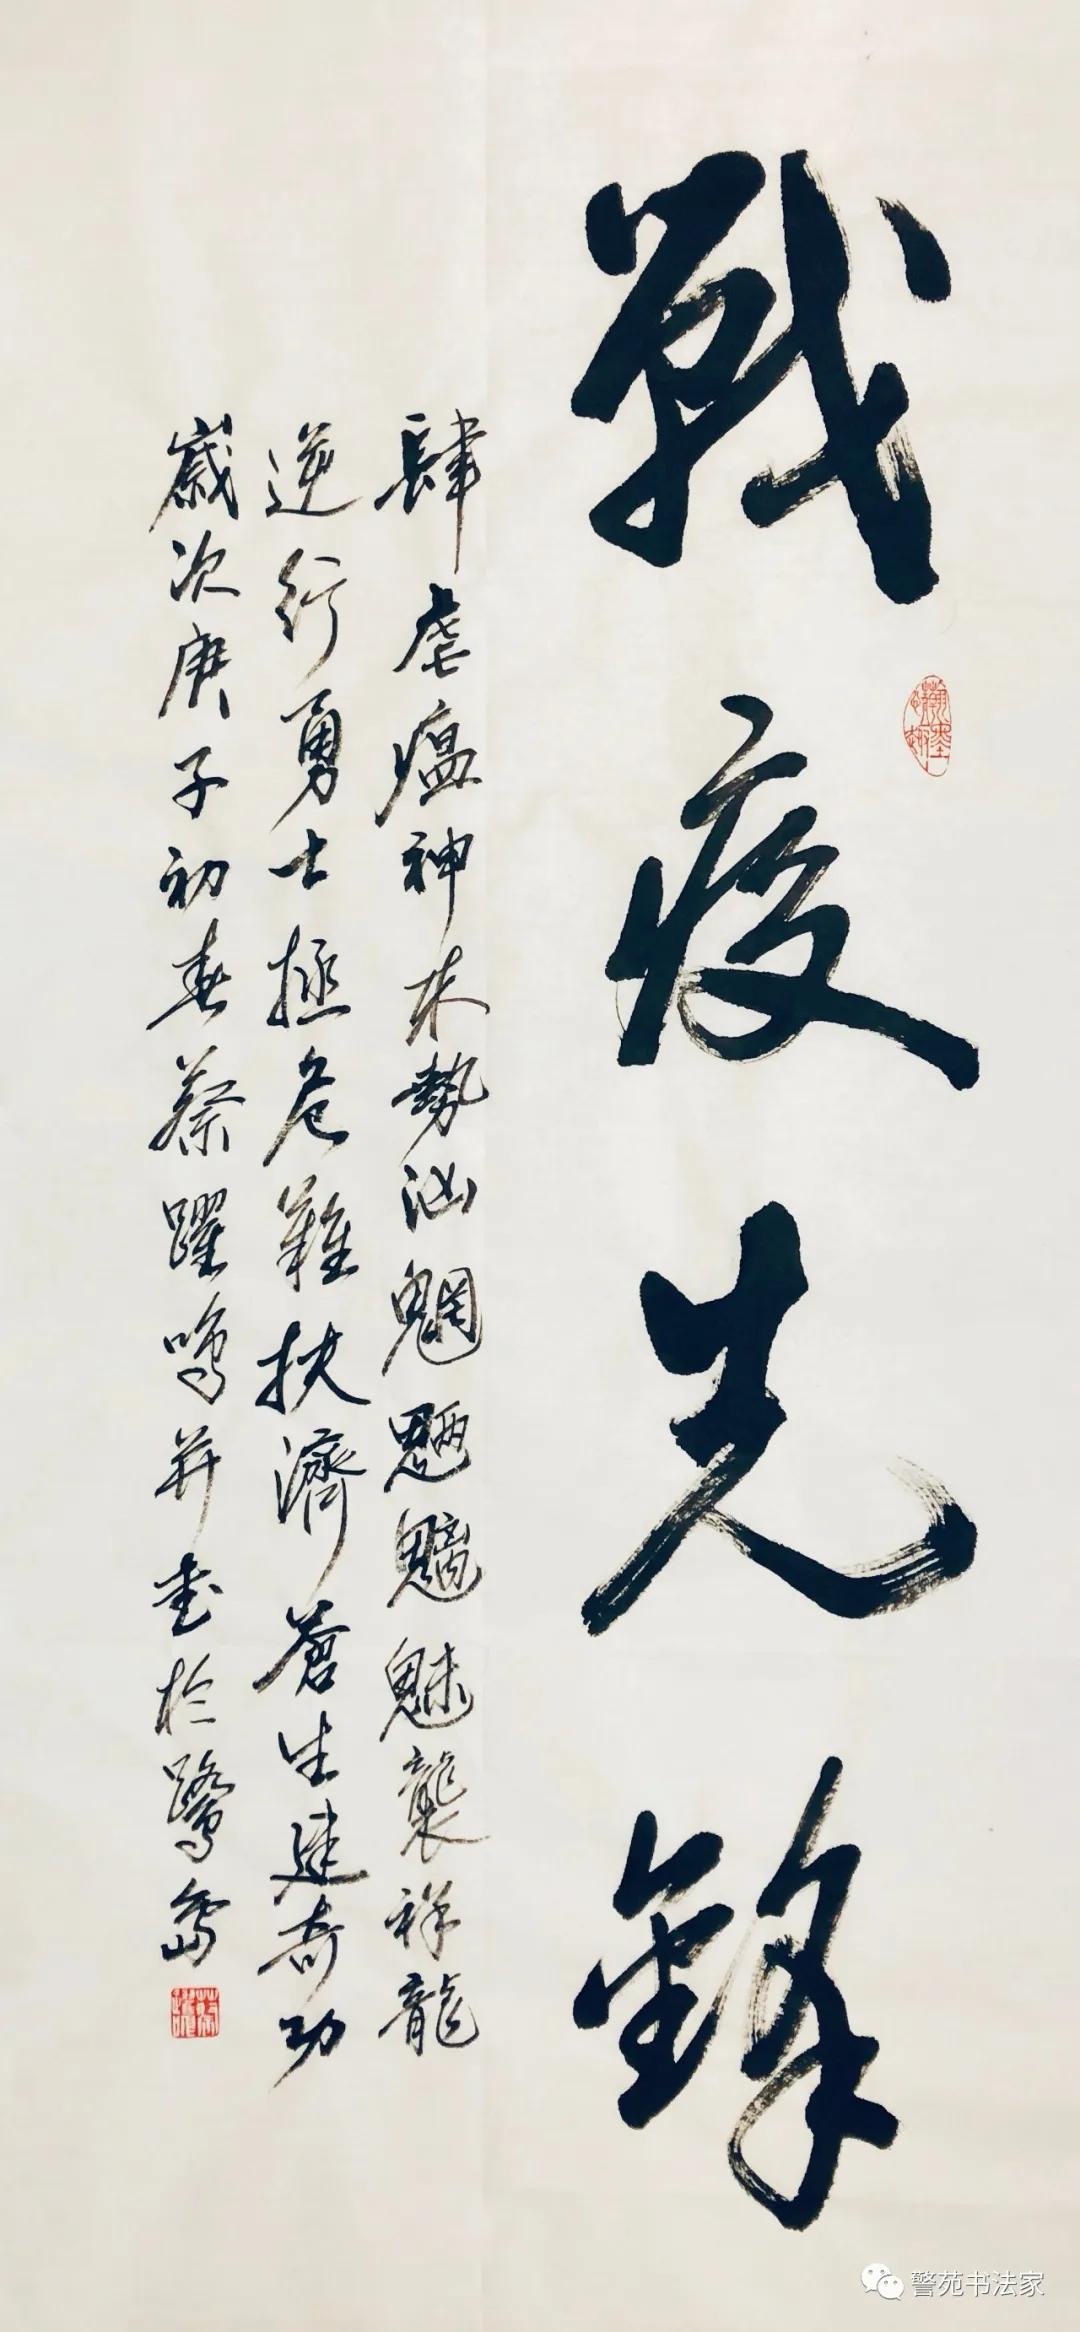 戰疫先鋒
肆虐瘟神來勢汹魍魎魑魅襲祥龍
逆行勇士拯危難扶濟蒼生建奇功
歲次庚子初春蔡躍鳴并書於鷺島
警苑书法家